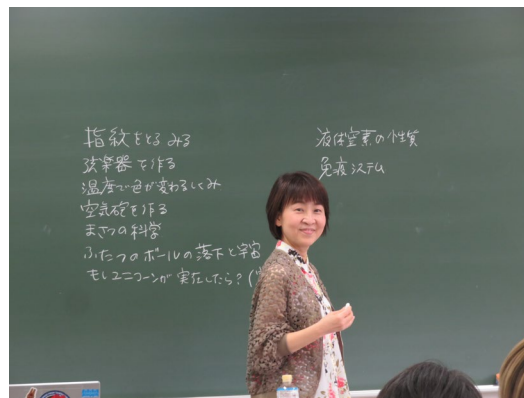 指紋をとる みる
弦楽器を作る
温度で色が変わるしくみ
空気砲を作る
まさつの科学
ふたつのボールの落下と宇宙
もしユニコーンが実在したら？(
液体窒素の性質
免疫システム